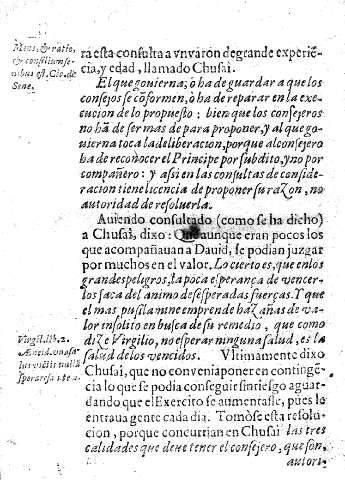 Mens, & ratio,
& consilium se-
nibus est. Cic. de
Sene.
rá esta consulta a vn varon de grande experiẽ-
cia, y edad, llamado Chusai.
El que gouierna, ò ha de guardar a que los
consejos se cõformen, ò ha de reparar en la exe-
cucion de lo propuesto: bien que los consejeros
no hã de ser mas de para proponer, y al que go-
uierna toca la deliberacion, porque al consejero
ha de reconocer el Principe por subdito, y no por
compañero: y assi en las consultas de conside-
racion tiene licencia de proponer su razon, no
autoridad de resoluerla.
Auiendo consultado (como se ha dicho)
a Chusai, dixo: Que aunque eran pocos los
que acompañauan a Dauid, se podian juzgar
por muchos en el valor. Lo cierto es, que en los
grandes peligros, la poca esperança de vencer-
los saca del animo desesperadas fuerças. Y que
el mas pusilanime emprende hazañas de va-
lor insolito en busca de su remedio, que como
dize Virgilio, no esperar ninguna salud, es la
salud de los vencidos. Vltimamente dixo
Virgil. lib. 2.
Æneid. vna sa-
lus victis nullã
sperare salutẽ.
Chusai, que no conuenia poner en contingẽ-
cia lo que se podia conseguir sin riesgo aguar-
dando que el Exercito se aumentasse, pues le
entraua gente cada dia. Tomòse esta resolu-
cion, porque concurrian en Chusai las tres
calidades que deue tener el consejero, que son,
autori-